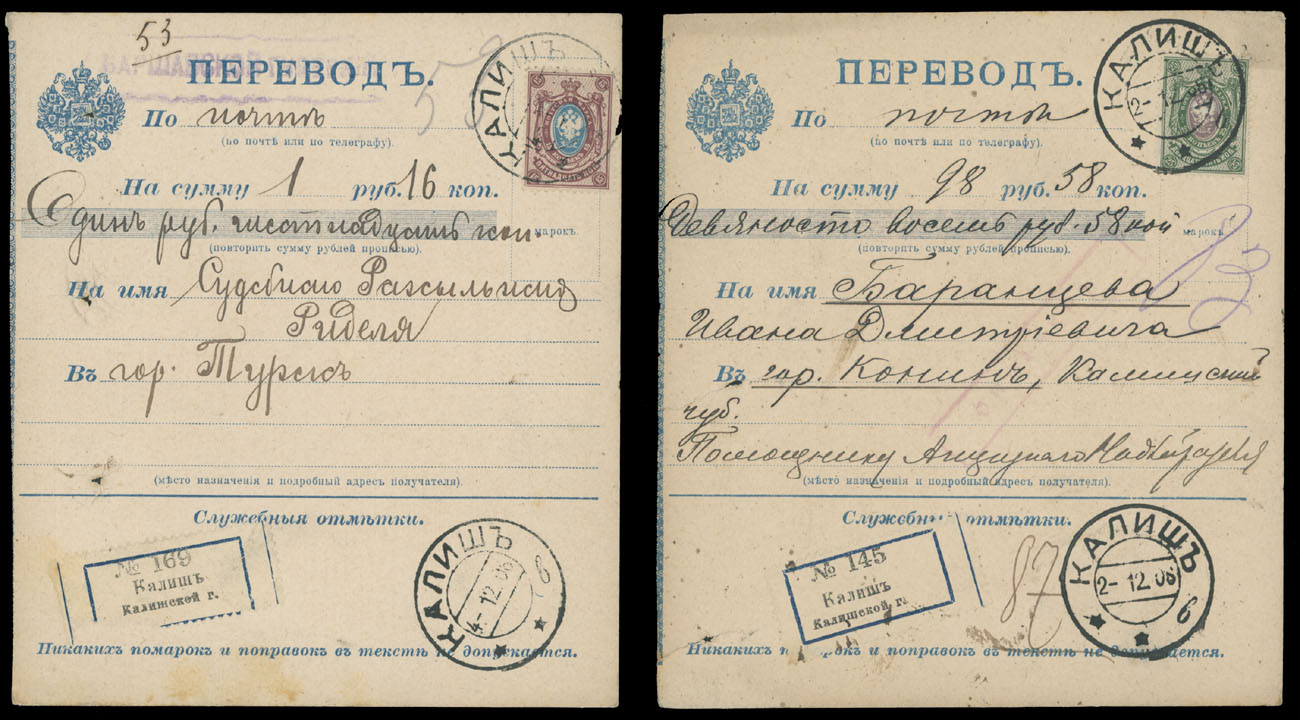 53
ПЕРЕВОДЪ.
КАЛИШЪ
По почтѣ
(по почтѣ или по телеграфу).
На сумму 1 руб. 16 коп.
Одинъ руб. шестнадцать коп.
марокъ.
(повторить сумму рублей прописью).
На имя Судебнаго Разсыльнаго
Риделя
Въ гор. Турекъ
(мѣсто назначенія и подробный адресъ получателя).
Служебныя отмѣтки.
№ 169
Калишъ
Калишской г.
КАЛИШЪ
4-12.08
в
Никакихъ помарокъ и поправокъ въ текстѣ не допускается.
ПЕРЕВОДЪ.
КАЛИШЪ
2-12.08
По почтѣ
(по почтѣ или по телеграфу).
На сумму 98 руб. 58 коп.
Девяносто восемь руб. 58 коп
марокъ
(повторить сумму рублей прописью).
На имя Баранцева
Ивана Дмитріевича
Въ гор. Конинъ, Калишской
губ.
Помощнику Акцизнаго
(мѣсто назначенія и подробный адресъ получателя).
Служебны отмѣтки.
№ 145
Калишъ
Калишской г.
87
КАЛИШЪ
2-12.08
в
Никакихъ помарокъ и поправокъ въ текстѣ не допускается.